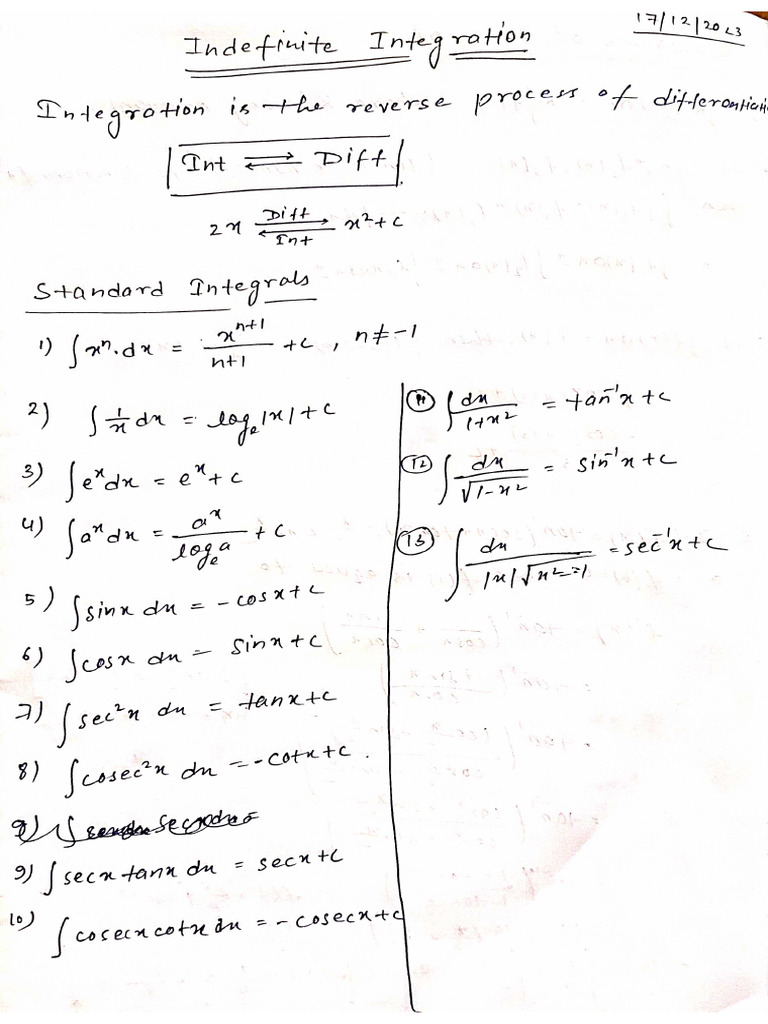 17/12/2023
Indefinite Integration
Integration is the reverse process of differentiati
Int ⇌ Diff
2x ⇌ x²+c
Diff
Int
Standard Integrals
1) ∫xⁿ.dx = xⁿ⁺¹/n+1 +c, n≠-1
2) ∫1/x dx = logₑ|x|+c
3) ∫eˣdx = eˣ+c
4) ∫aˣdx = aˣ/logₑa +c
5) ∫sinx dx = -cosx+c
6) ∫cosx dx = sinx+c
7) ∫sec²x dx = tanx+c
8) ∫cosec²x dx = -cotx+c.
9) ∫secx tanx dx = secx+c
10) ∫cosecx cotx dx = -cosecx+c
11 ∫dx/1+x² = tan⁻¹x+c
12 ∫dx/√1-x² = sin⁻¹x+c
13 ∫dx/|x|√x²-1 = sec⁻¹x+c